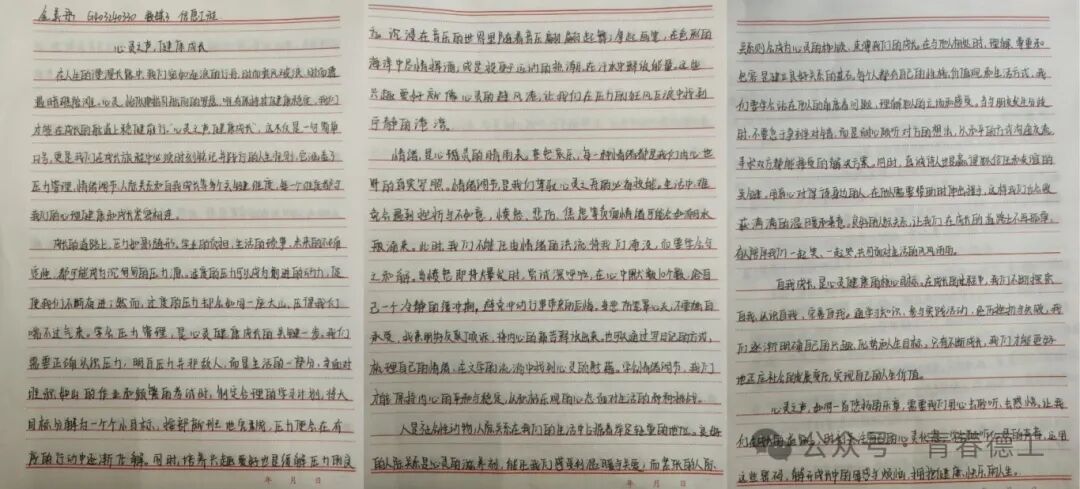 心灵之声，健康成长
在人生的漫漫长路中，我们宛如在海的行舟，时而乘风破浪，时而遭
遇暗礁险滩。心灵，恰似那指引航向的罗盘，唯有保持其健康稳定，我们
才能在成长的航道上稳健前行。“心灵之声，健康成长”，这不仅是一句简单
口号，更是我们在成长旅程中必须时刻铭记并践行的人生准则，它涵盖了
压力管理、情绪调节、人际关系和自我成长等多个关键维度，每一个维度都与
我们的心理健康和成长紧密相连。
成长的道路上，压力如影随形，学业的负担、生活的琐事、未来的不确
定性，都可能成为沉甸甸的压力源。适度的压力可以成为前进的动力，促
使我们不断奋进；然而，过度的压力却会如同一座大山，压得我们
喘不过气来。学会压力管理，是心灵健康成长的关键一步。我们
需要正确认识压力，明白压力并非敌人，而是生活的一部分，当面对
堆积如山的作业和频繁的考试时，制定合理的学习计划，将大
目标分解为一个个小目标，按部就班地去实现，压力便会在有
序的行动中逐渐化解。同时，培养兴趣爱好也是缓解压力的良
方，沉浸在音乐的世界里，随着音乐翩翩起舞；拿起画笔，在色彩的
海洋中尽情挥洒；或是投身于运动的热潮，在汗水中释放能量。这些
兴趣爱好就像心灵的避风港，让我们在压力的狂风巨浪中找到
宁静的港湾。
情绪，是心灵的晴雨表。喜怒哀乐，每一种情绪都是我们内心世
界的真实写照。情绪调节是我们驾驭心灵之舟的必备技能。生活中，难
免会遇到挫折与不如意，愤怒、悲伤、焦虑等负面情绪可能会如潮水
般涌来。此时，我们不能任由情绪的洪流将我们淹没，而要学会与
之和解。当愤怒即将爆发时，尝试深呼吸，在心中默数10个数，给自
己一个冷静的缓冲期，避免冲动行事带来的后悔。当悲伤笼罩心头，不要独自
承受，找亲朋好友聚聚倾诉，将内心的痛苦释放出来，也可以通过写日记的方式，
梳理自己的情绪，在文字的流淌中找到心灵的慰藉。学会情绪调节，我们
才能保持内心的平和与稳定，从而以乐观的心态面对生活的种种挑战。
人是社会性动物，人际关系在我们的生活中占据着举足轻重的地位。良好
的人际关系是心灵的滋养剂，能让我们感受到温暖与关爱；而紧张的人际
关系则会成为心灵的枷锁，束缚我们的成长。在与他人相处时，理解、尊重和
包容是建立良好关系的基石。每个人都有自己的性格、价值观和生活方式，我
们要学会站在他人的角度看问题，理解他人的立场和感受。当与朋友发生分歧
时，不要急于争辩对错，而是耐心倾听对方的想法，以和平的方式沟通交流，
寻求双方都能接受的解决方案。同时，真诚待人也是赢得他人信任和友谊的
关键，用真心对待身边的人，在他人需要帮助时伸出援手，这样我们也会收
获满满的温暖和善意。良好的人际关系，让我们在成长的道路上不再孤单，
有人陪伴我们一起笑、一起哭，共同面对生活的风风雨雨。
自我成长，是心灵健康的核心目标。在成长的旅程中，我们不断探索
自我、认识自我、完善自我。通过学习知识、参与实践活动、经历挫折与失败，我
们逐渐明确自己的兴趣、优势和人生目标，只有不断成长，我们才能更好
地适应社会的发展变化，实现自己的人生价值。
心灵之声，如同一首悠扬的乐章，需要我们用心去聆听，去感悟，让我
这些密码，解开成长中的困惑与烦恼，拥抱健康、快乐的人生。
年 月 日
年 月 日
年 月 日
公众号·青春德工